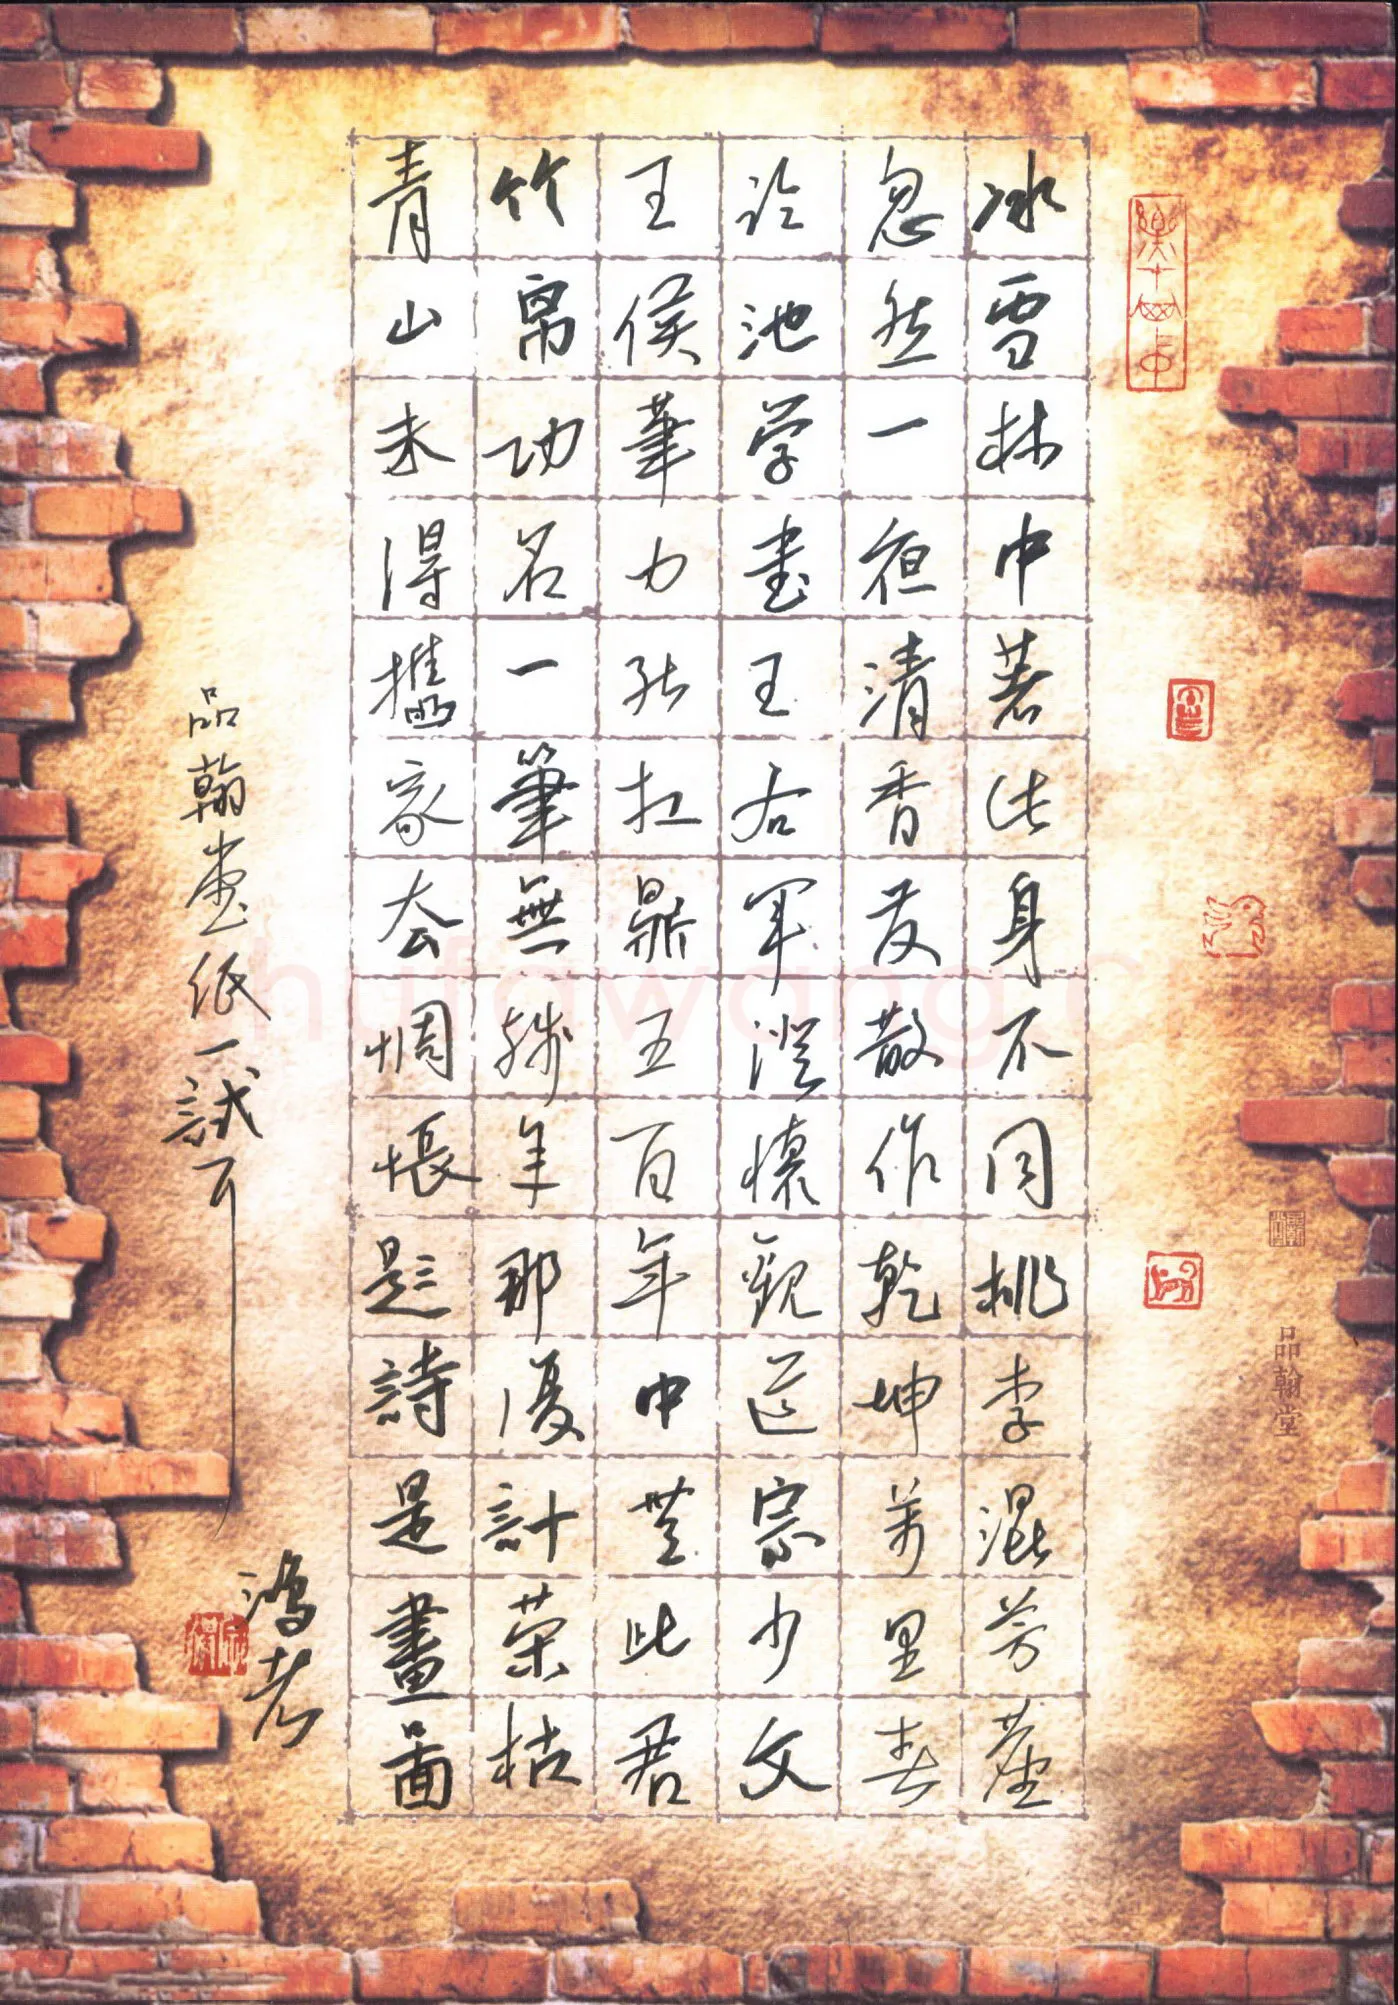 冰雪林中著此身不同桃李混芳塵
忽然一夜清香發散作乾坤萬里春
臨池学書王右軍澄懷觀道宗少文
王侯筆力能扛鼎五百年中無此君
竹帛功名一筆無殘年那復計荣枯
青山未得攜家去惆悵題詩是畫圖
品翰堂紙一試可
鴻考
品翰堂
hufawang.c